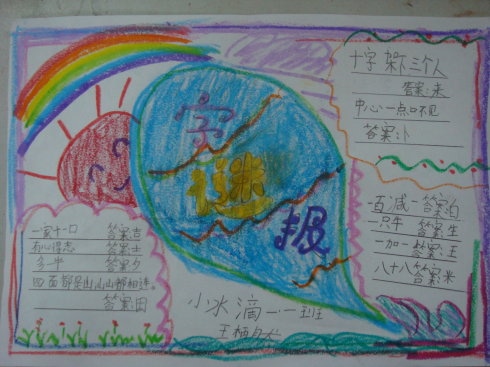 字
谜
报
十字架下三个人
答案:来
中心一点口不见
答案:卜
百减一答案:白
一只牛 答案:生
一加一答案:王
八十八答案:米
一家十一口 答案吉
有心得志 答案士
多一半 答案夕
四面都是山山山都相连。
答案:田
小水滴一·一班